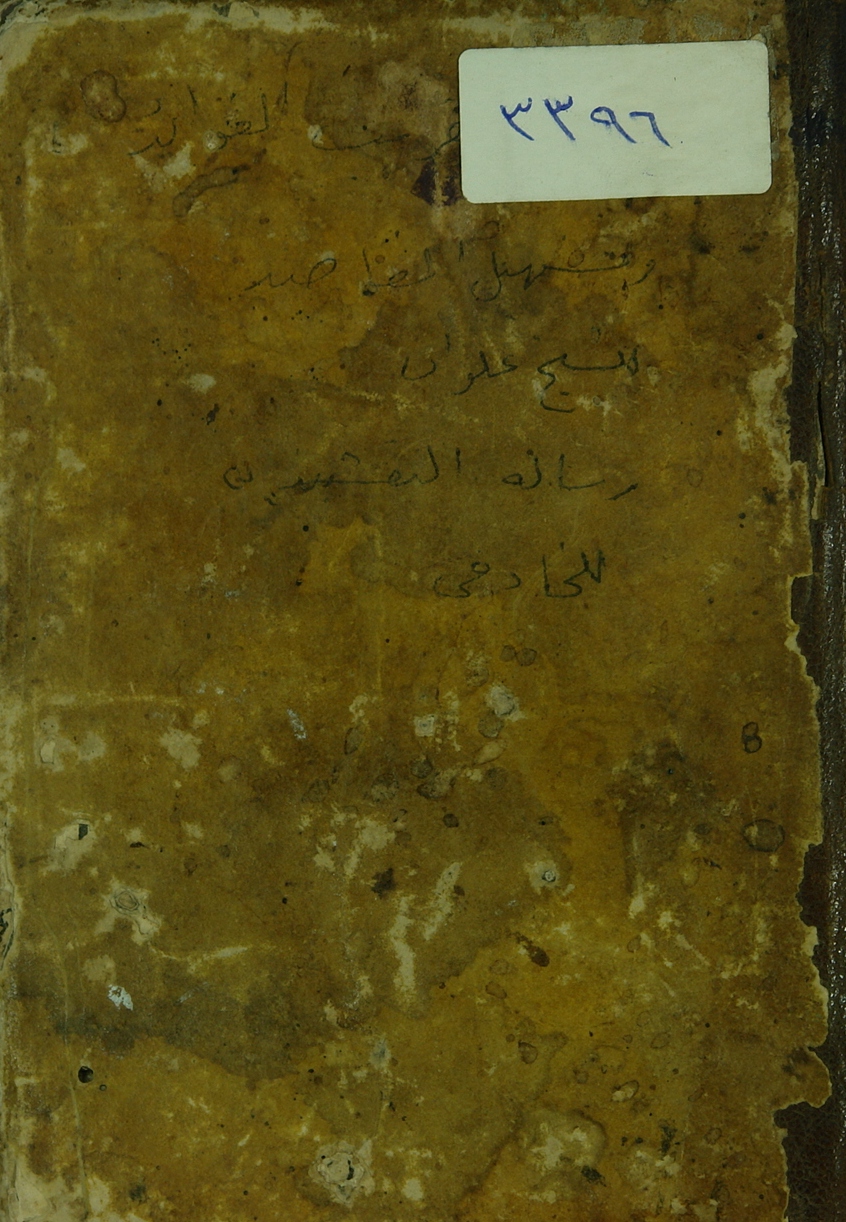 ٣٣٩٦
الفوائد
وتسهيل المقاصد
للشيخ علوان
رسالة النقشبندية
للخادمي